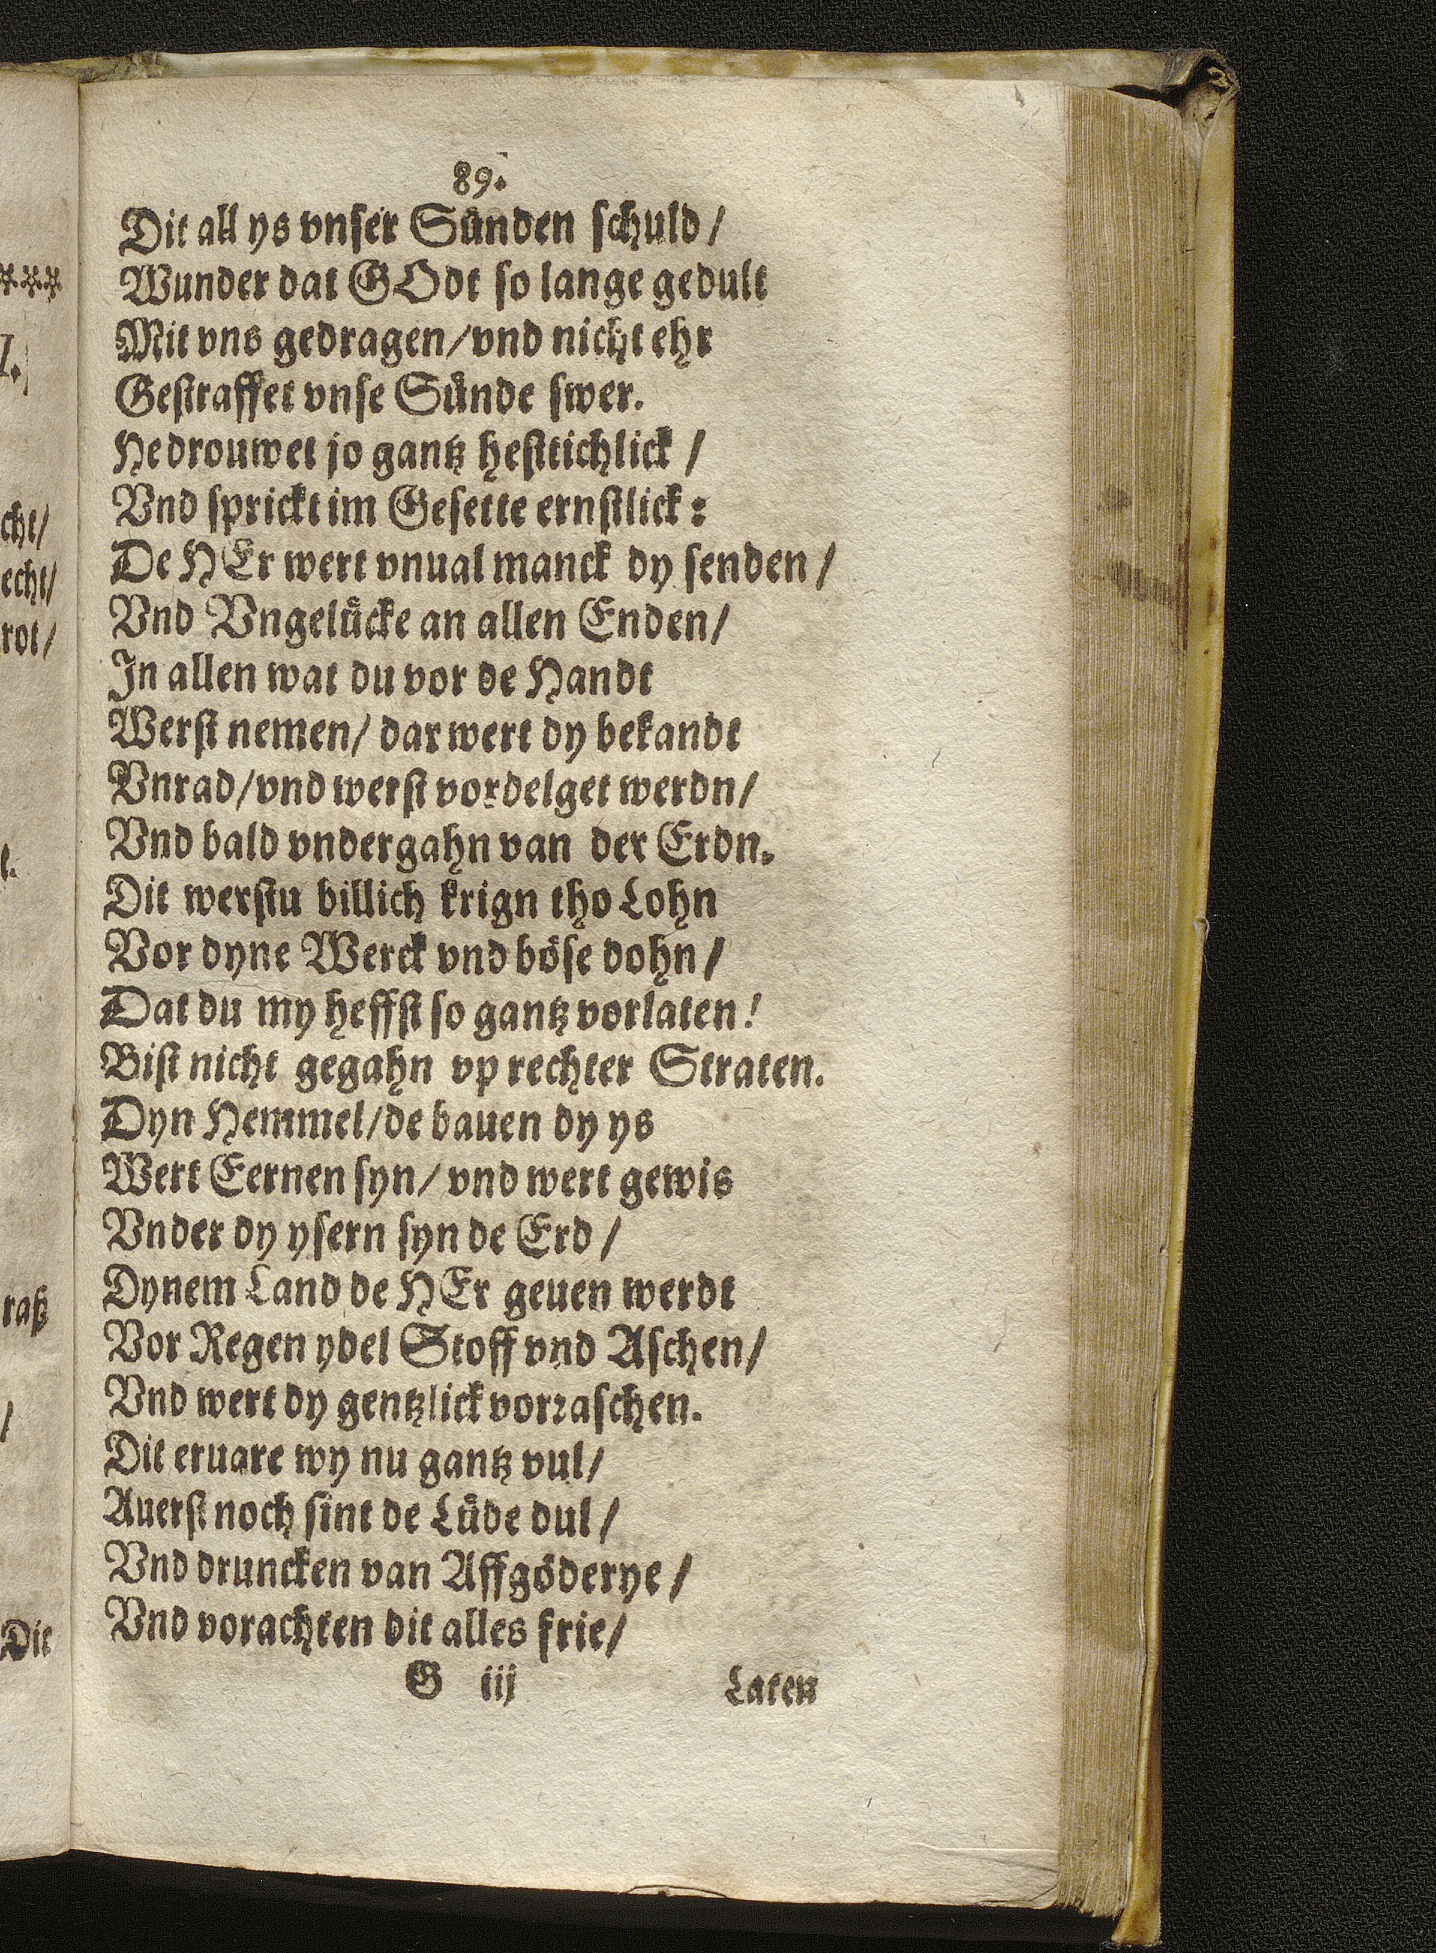 89.
Dit all ys vnser Sünden schuld /
Wunder dat GOdt so lange gedult
Mit vns gedragen / vnd nicht ehr
Gestraffet vnse Sünde swer.
He drouwet jo gantz hefftichlick /
Vnd sprickt im Gesette ernstlick :
De HEr wert vnual manck dy senden /
Vnd Vngelücke an allen Enden /
In allen wat du vor de Handt
Werst nemen / dar wert dy bekandt
Vnrad / vnd werst vordelget werdn /
Vnd bald vndergahn van der Erdn.
Dit werstu billich krign tho Lohn
Vor dyne Werck vnd böse dohn /
Dat du my heffst so gantz vorlaten !
Bist nicht gegahn vp rechter Straten.
Dyn Hemmel / de bauen dy ys
Wert Eernen syn / vnd wert gewis
Vnder dy ysern syn de Erd /
Dynem Land de HEr geuen werdt
Vor Regen ydel Stoff vnd Aschen /
Vnd wert dy gentzlick vorraschen.
Dit eruare wy nu gantz vul /
Auerst noch sint de Lüde dul /
Vnd druncken van Affgöderye /
Vnd vorachten dit alles frie /
G iij Laten